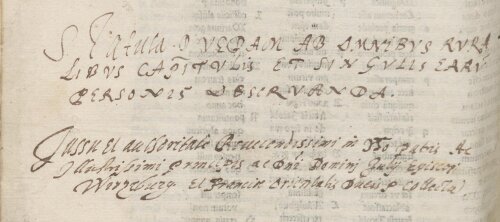 Statuta QVEDAM AB OMNIBVS RVRA
LIBVS CAPITVLIS ET SINGVLIS EARV
PERSONIS OBSERVANDA.
Jussu et authoritate Reverendissimi in Xpo patris Ac
Illustrissimi principis ac Dni Domini Julij Episcopi
Wirtzburg. Et Franciæ Orientalis Ducis p Collecta